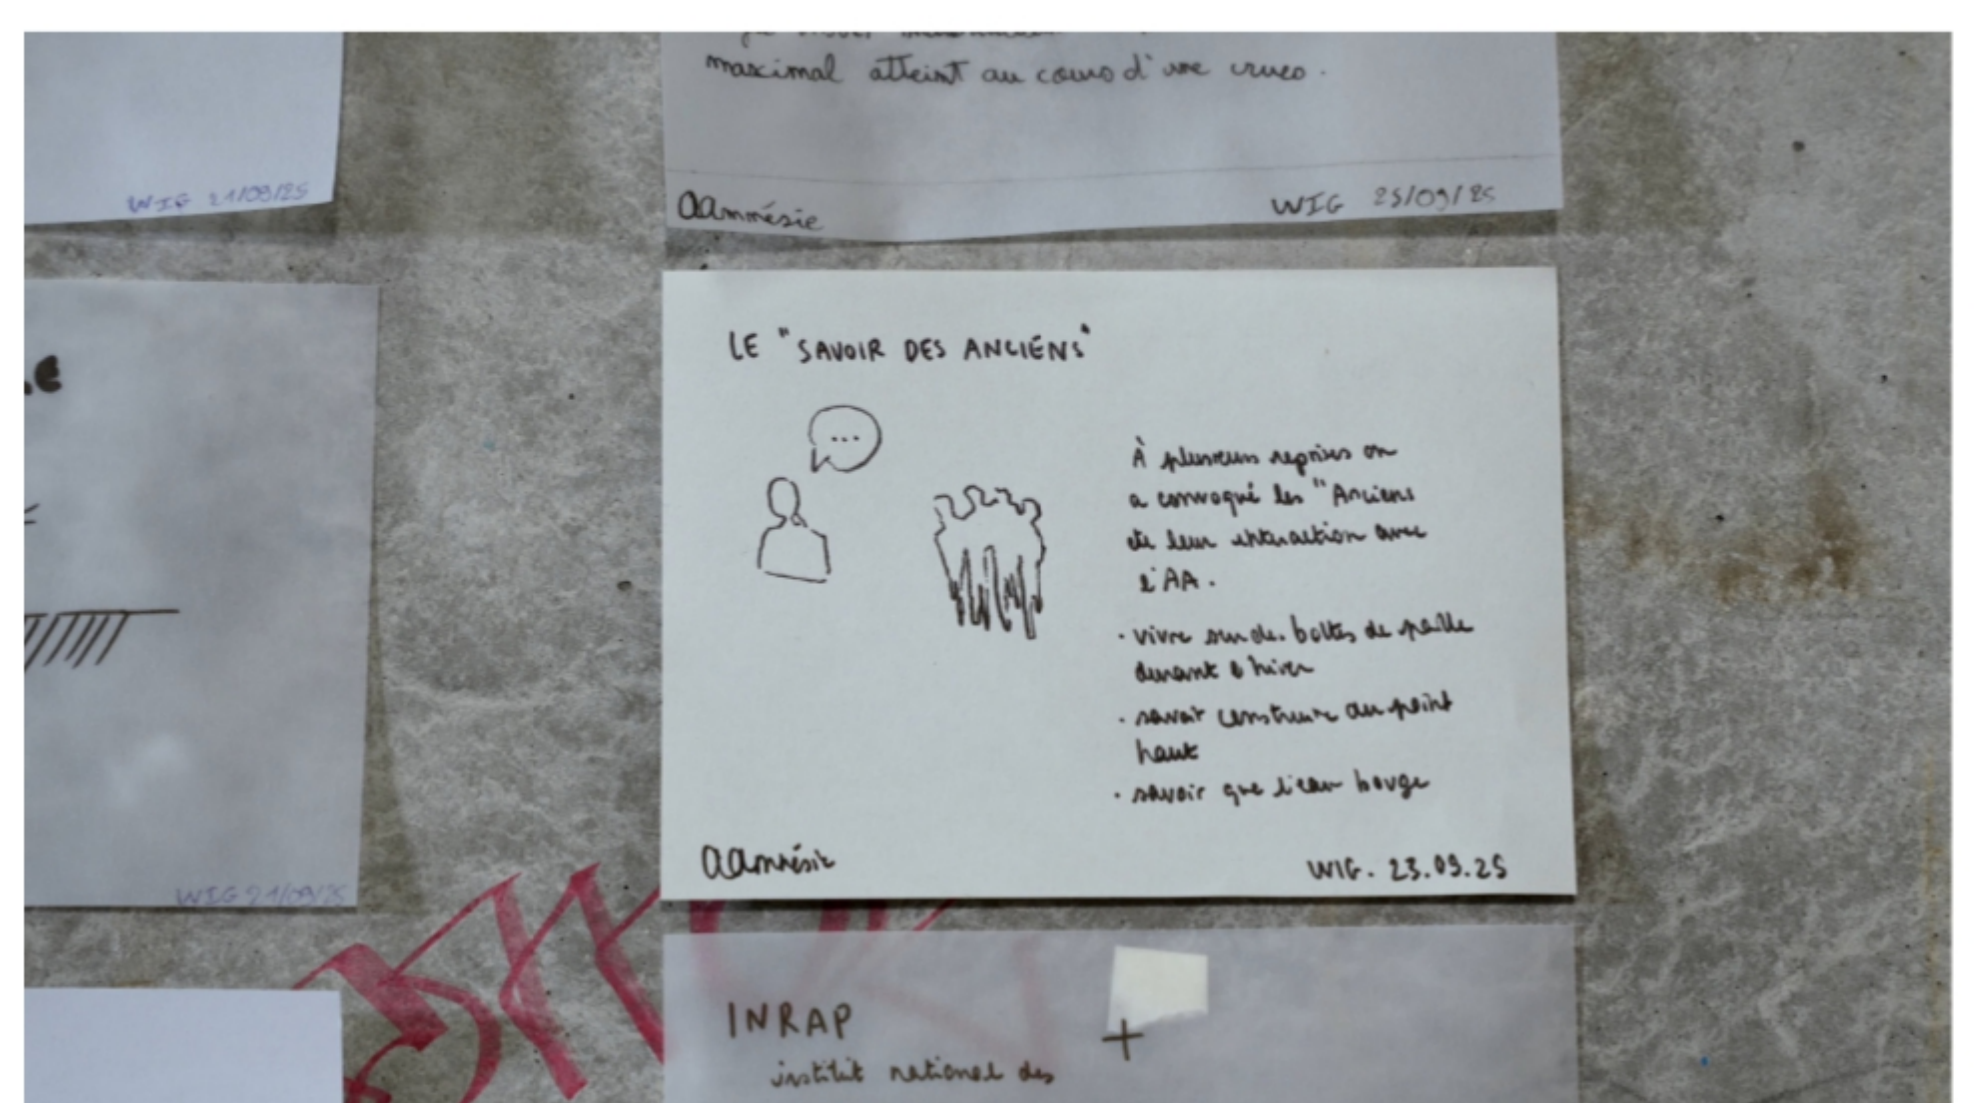 maximal atteint au cours d'une crues.
aamnésie
WIG 25/09/25
WIG 21/09/25
LE "SAVOIR DES ANCIENS"
...
À plusieurs reprises on
a convoqué les "Anciens
et leur interaction avec
l'AA.
· vivre sur des bottes de paille
durant l'hiver
· savoir construire au point
haut
· savoir que l'eau bouge
aamnésie
WIG. 23.09.25
WIG 21/09/25
INRAP
+
institut national des